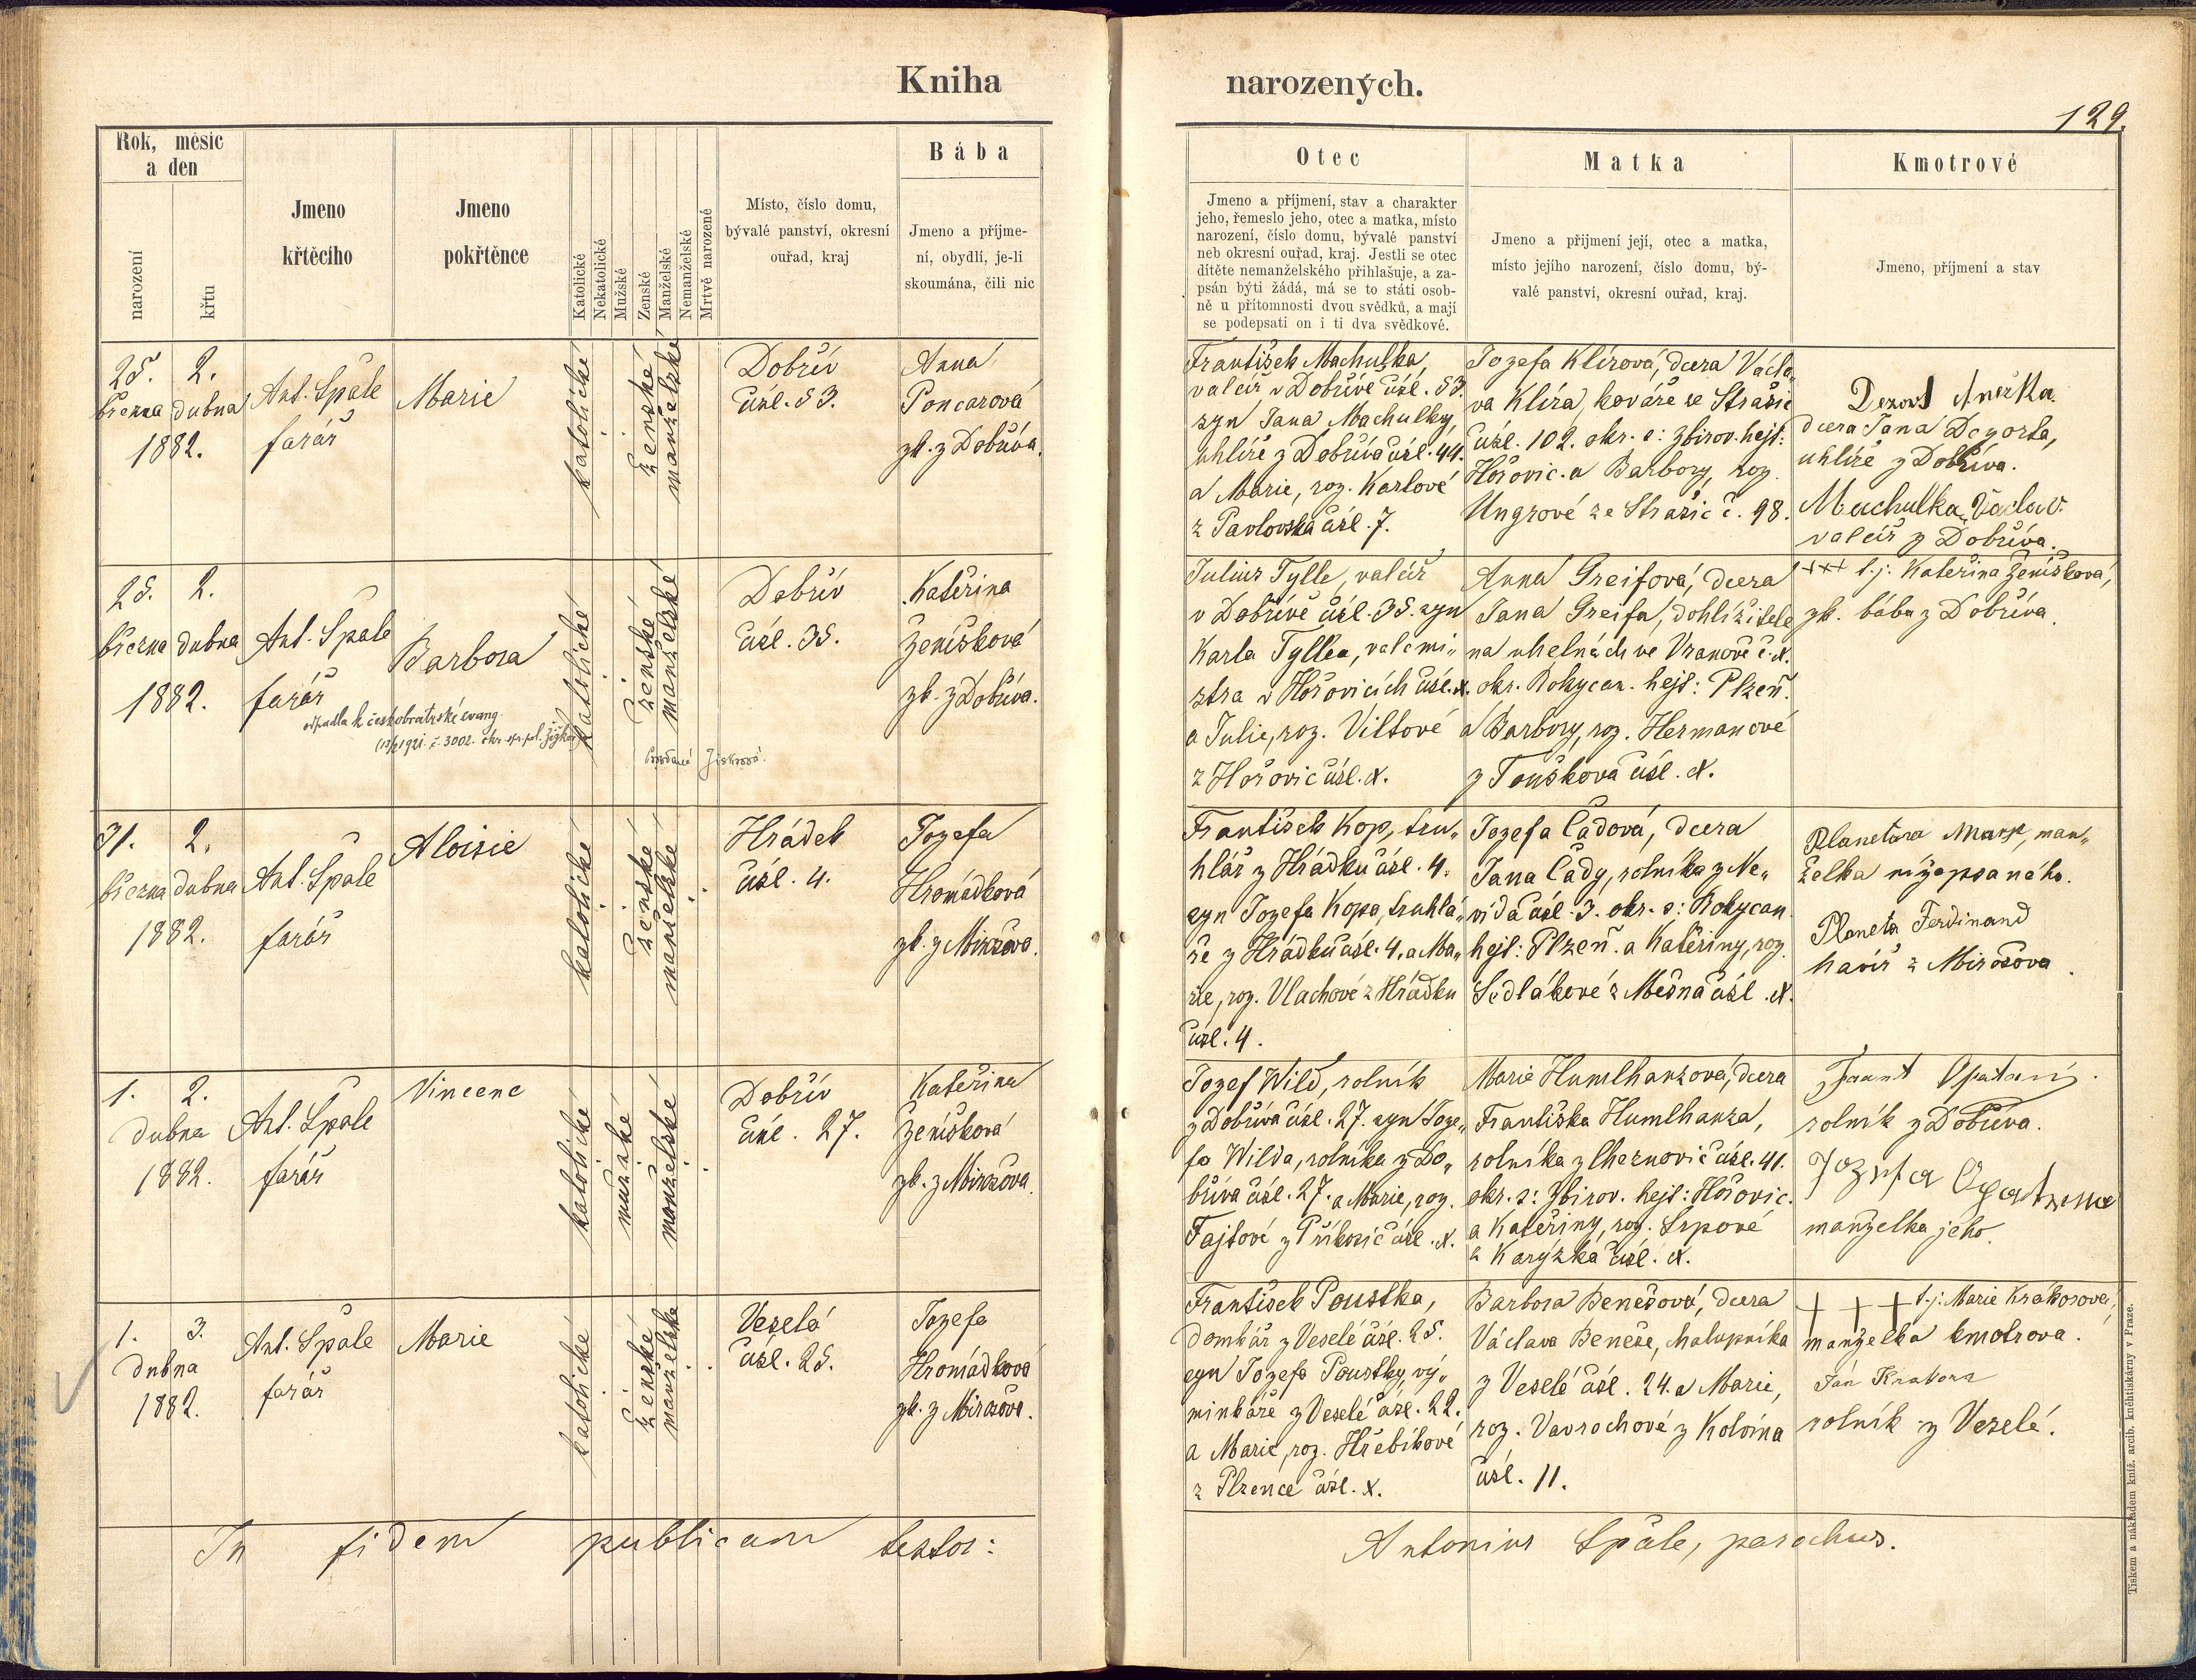 Kniha
narozených.
129.
Rok, měsíc
a den
narození
křtu
Jmeno
křtěcího
Jmeno
pokřtěnce
Katolické
Nekatolické
Mužské
Ženské
Manželské
Nemanželské
Mrtvě narozené
Místo, číslo domu,
bývalé panství, okresní
ouřad, kraj
Bába
Jmeno a příjme-
ní, obydlí, je-li
skoumána, čili nic
Otec
Jmeno a příjmení, stav a charakter
jeho, řemeslo jeho, otec a matka, místo
narození, číslo domu, bývalé panství
neb okresní ouřad, kraj. Jestli se otec
dítěte nemanželského přihlašuje, a za-
psán býti žádá, má se to státi osob-
ně u přítomnosti dvou svědků, a mají
se podepsati on i ti dva svědkové.
Matka
Jmeno a přijmení její, otec a matka,
místo jejího narození, číslo domu, bý-
valé panství, okresní ouřad, kraj.
Kmotrové
Jmeno, příjmení a stav
25. 2.
března dubna
1882.
Ant. Špale
farář
Marie
katolické
ženské
manželské
Dobřív
čísl. 53.
Anna
Poncarová
zk. z Dobříva.
František Machulka,
valcíř v Dobřívě čísl. 53.
syn Jana Machulky,
uhlíře z Dobříva čísl. 44.
a Marie, roz. Karlové
z Pavlovska čísl. 7.
Jozefa Klírová, dcera Václa„
va Klíra, kováře ze Strašic
čísl. 102. okr. s: Zbirov. hejt:
Hořovic. a Barbory, roz.
Ungrové ze Strašic č. 98.
Anežka
dcera Jana
uhlíře z Dobříva.
Machulka Václav.
valcíř z Dobříva.
25. 2.
března dubna
1882.
Ant. Špale
farář
Barbora
odpadla k českobratrské evang.
katolické
ženské
manželské
Dobřív
čísl. 35.
Kateřina
Ženíšková
zk. z Dobříva.
Julius Tylle, valcíř
v Dobřívě čísl. 35. syn
Karla Tyllea, valcmi„
stra v Hořovicích čísl. x.
a Julie, roz. Viltové
z Hořovic čísl. x.
Anna Greifová, dcera
Jana Greifa, dohlížitele
na uhelnách ve Vranově č. x.
okr. Rokycan. hejt: Plzeň.
a Barbory, roz. Hermanové
z Touškova čísl. x.
+++ t.j: Kateřina Ženíšková,
zk. bába z Dobříva.
31. 2.
března dubna
1882.
Ant. Špale
farář
Aloisie
katolické
ženské
manželské
Hrádek
čísl. 4.
Jozefa
Hromádková
zk. z Mirošova.
František Kop, tru„
hlář z Hrádku čísl. 4.
syn Jozefa Kopa, truhlá„
ře z Hrádku čísl. 4. a Ma„
rie, roz. Vlachové z Hrádku
čísl. 4.
Jozefa Čadová, dcera
Jana Čady, rolníka z Ne„
vida čísl. 3. okr. s: Rokycan.
hejt: Plzeň. a Kateřiny, roz.
Sedlákové z Mešna čísl. x.
Planetova Marye, man„
želka nížepsaného.
Planeta Ferdinand
havíř z Mirošova.
1. 2.
dubna
1882.
Ant. Špale
farář
Vincenc
katolické
mužské
manželské
Dobřív
čísl. 27.
Kateřina
Ženíšková
zk. z Mirošova.
Jozef Wild, rolník
z Dobříva čísl. 27. syn Joze„
fa Wilda, rolníka z Do„
bříva čísl. 27. a Marie, roz.
Fajtové z Příkosic čísl. x.
Marie Humlhanzová, dcera
Františka Humlhanza,
rolníka z Cheznovic čísl. 41.
okr. s: Zbirov. hejt: Hořovic.
a Kateřiny, roz. Srpové
z Karýzka čísl. x.
rolník z Dobříva.
Jozefa
manželka jeho.
1. 3.
dubna
1882.
Ant. Špale
farář
Marie
katolické
ženské
manželské
Veselá
čísl. 25.
Jozefa
Hromádková
zk. z Mirošova.
František Poustka,
domkář z Veselé čísl. 25.
syn Jozefa Poustky, vý„
minkáře z Veselé čísl. 22.
a Marie, roz. Hřebíkové
z Plzence čísl. x.
Barbora Benešová, dcera
Václava Beneše, chalupníka
z Veselé čísl. 24. a Marie,
roz. Vavrochové z Kolvína
čísl. 11.
+ + + t.j: Marie Krákorová,
manželka kmotrova.
Ján Krakora
rolník z Veselé.
In fidem publicam testor:
Antonius Špale, parochus.
Tiskem a nákladem kníž. arcib. kněhtiskárny v Praze.